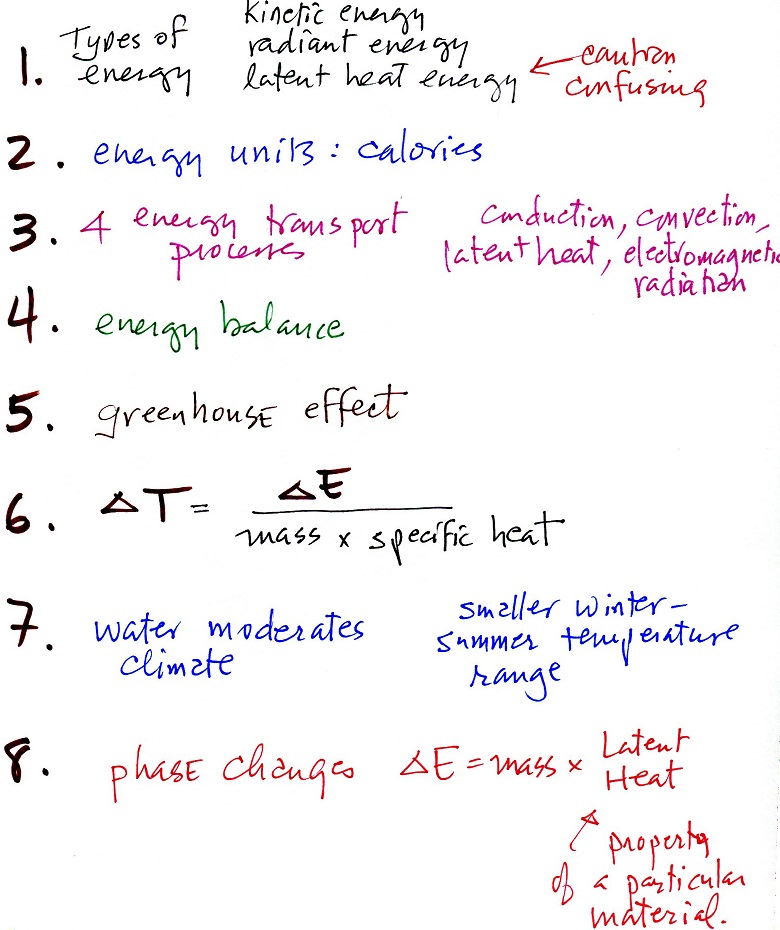 1. Types of energy
kinetic energy
radiant energy
latent heat energy
caution
confusing
2. energy units : calories
3. 4 energy transport
processes
conduction, convection,
latent heat, electromagnetic
radiation
4. energy balance
5. greenhouse effect
6. ΔT = ΔE
mass x specific heat
7. water moderates
climate
smaller winter-
summer temperature
range
8. phase changes ΔE = mass x Latent
Heat
property
of a particular
material.